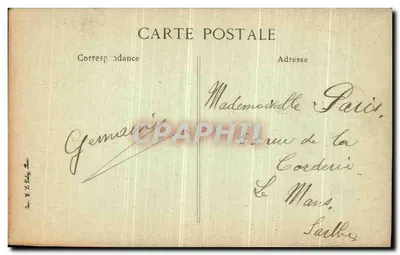 CARTE POSTALE
Correspondance
Adresse
Mademoiselle Paris.
rue de la
Corderie
Le Mans.
Sarthe
Germaine
CPARTPHIL